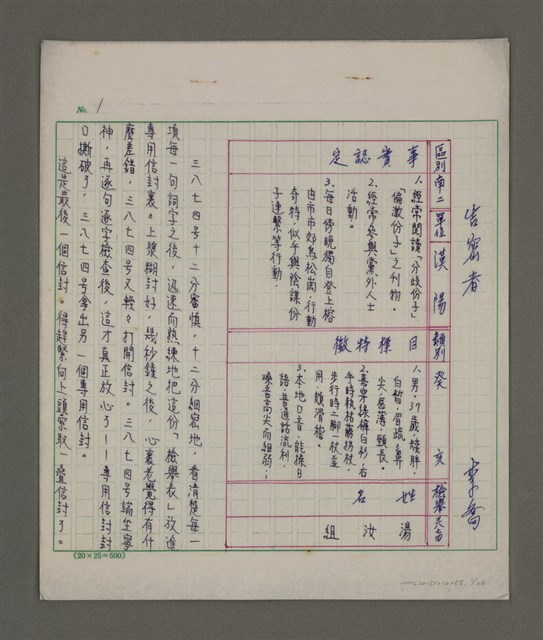 No. 1
告密者
李喬
區別 南二 單位 漢陽 類別 癸 文 檢舉表
事實認定
1.經常閱讀「分歧份子」
「偏激份子」之刊物。
2.經常參與黨外人士
活動。
3.每日傍晚獨自登上榕
由市市郊馬松崗,行動
奇特,似乎與陰謀份
子連繫等行動。
目標特徵
1.男,37歲,矮胖,
白皙,眉疏,鼻
尖,唇薄,頸長。
2.喜穿綠褲白衫,右
手時執枯藤拐杖,
步行時二腳一杖並
用,頗滑稽。
3.本地口音,能操日
語,普通話流利,
嗓音高尖而細弱;
姓名
湯汝組
三八七四号十二分審慎,十二分細密地,看清楚每一
項每一句詞字之後,迅速而熟練地把這份「檢舉表」放進
專用信封裏。上漿糊封好,幾秒鐘之後,心裏老覺得有什
麼差錯,三八七四号又輕々打開信封。三八七四号端坐寧
神,再逐句逐字檢查後,這才真正放心了——專用信封封
口撕破了,三八七四号拿出另一個專用信封。
這是最後一個信封。得趕緊向上頭索取一疊信封了。
(20×25=500)